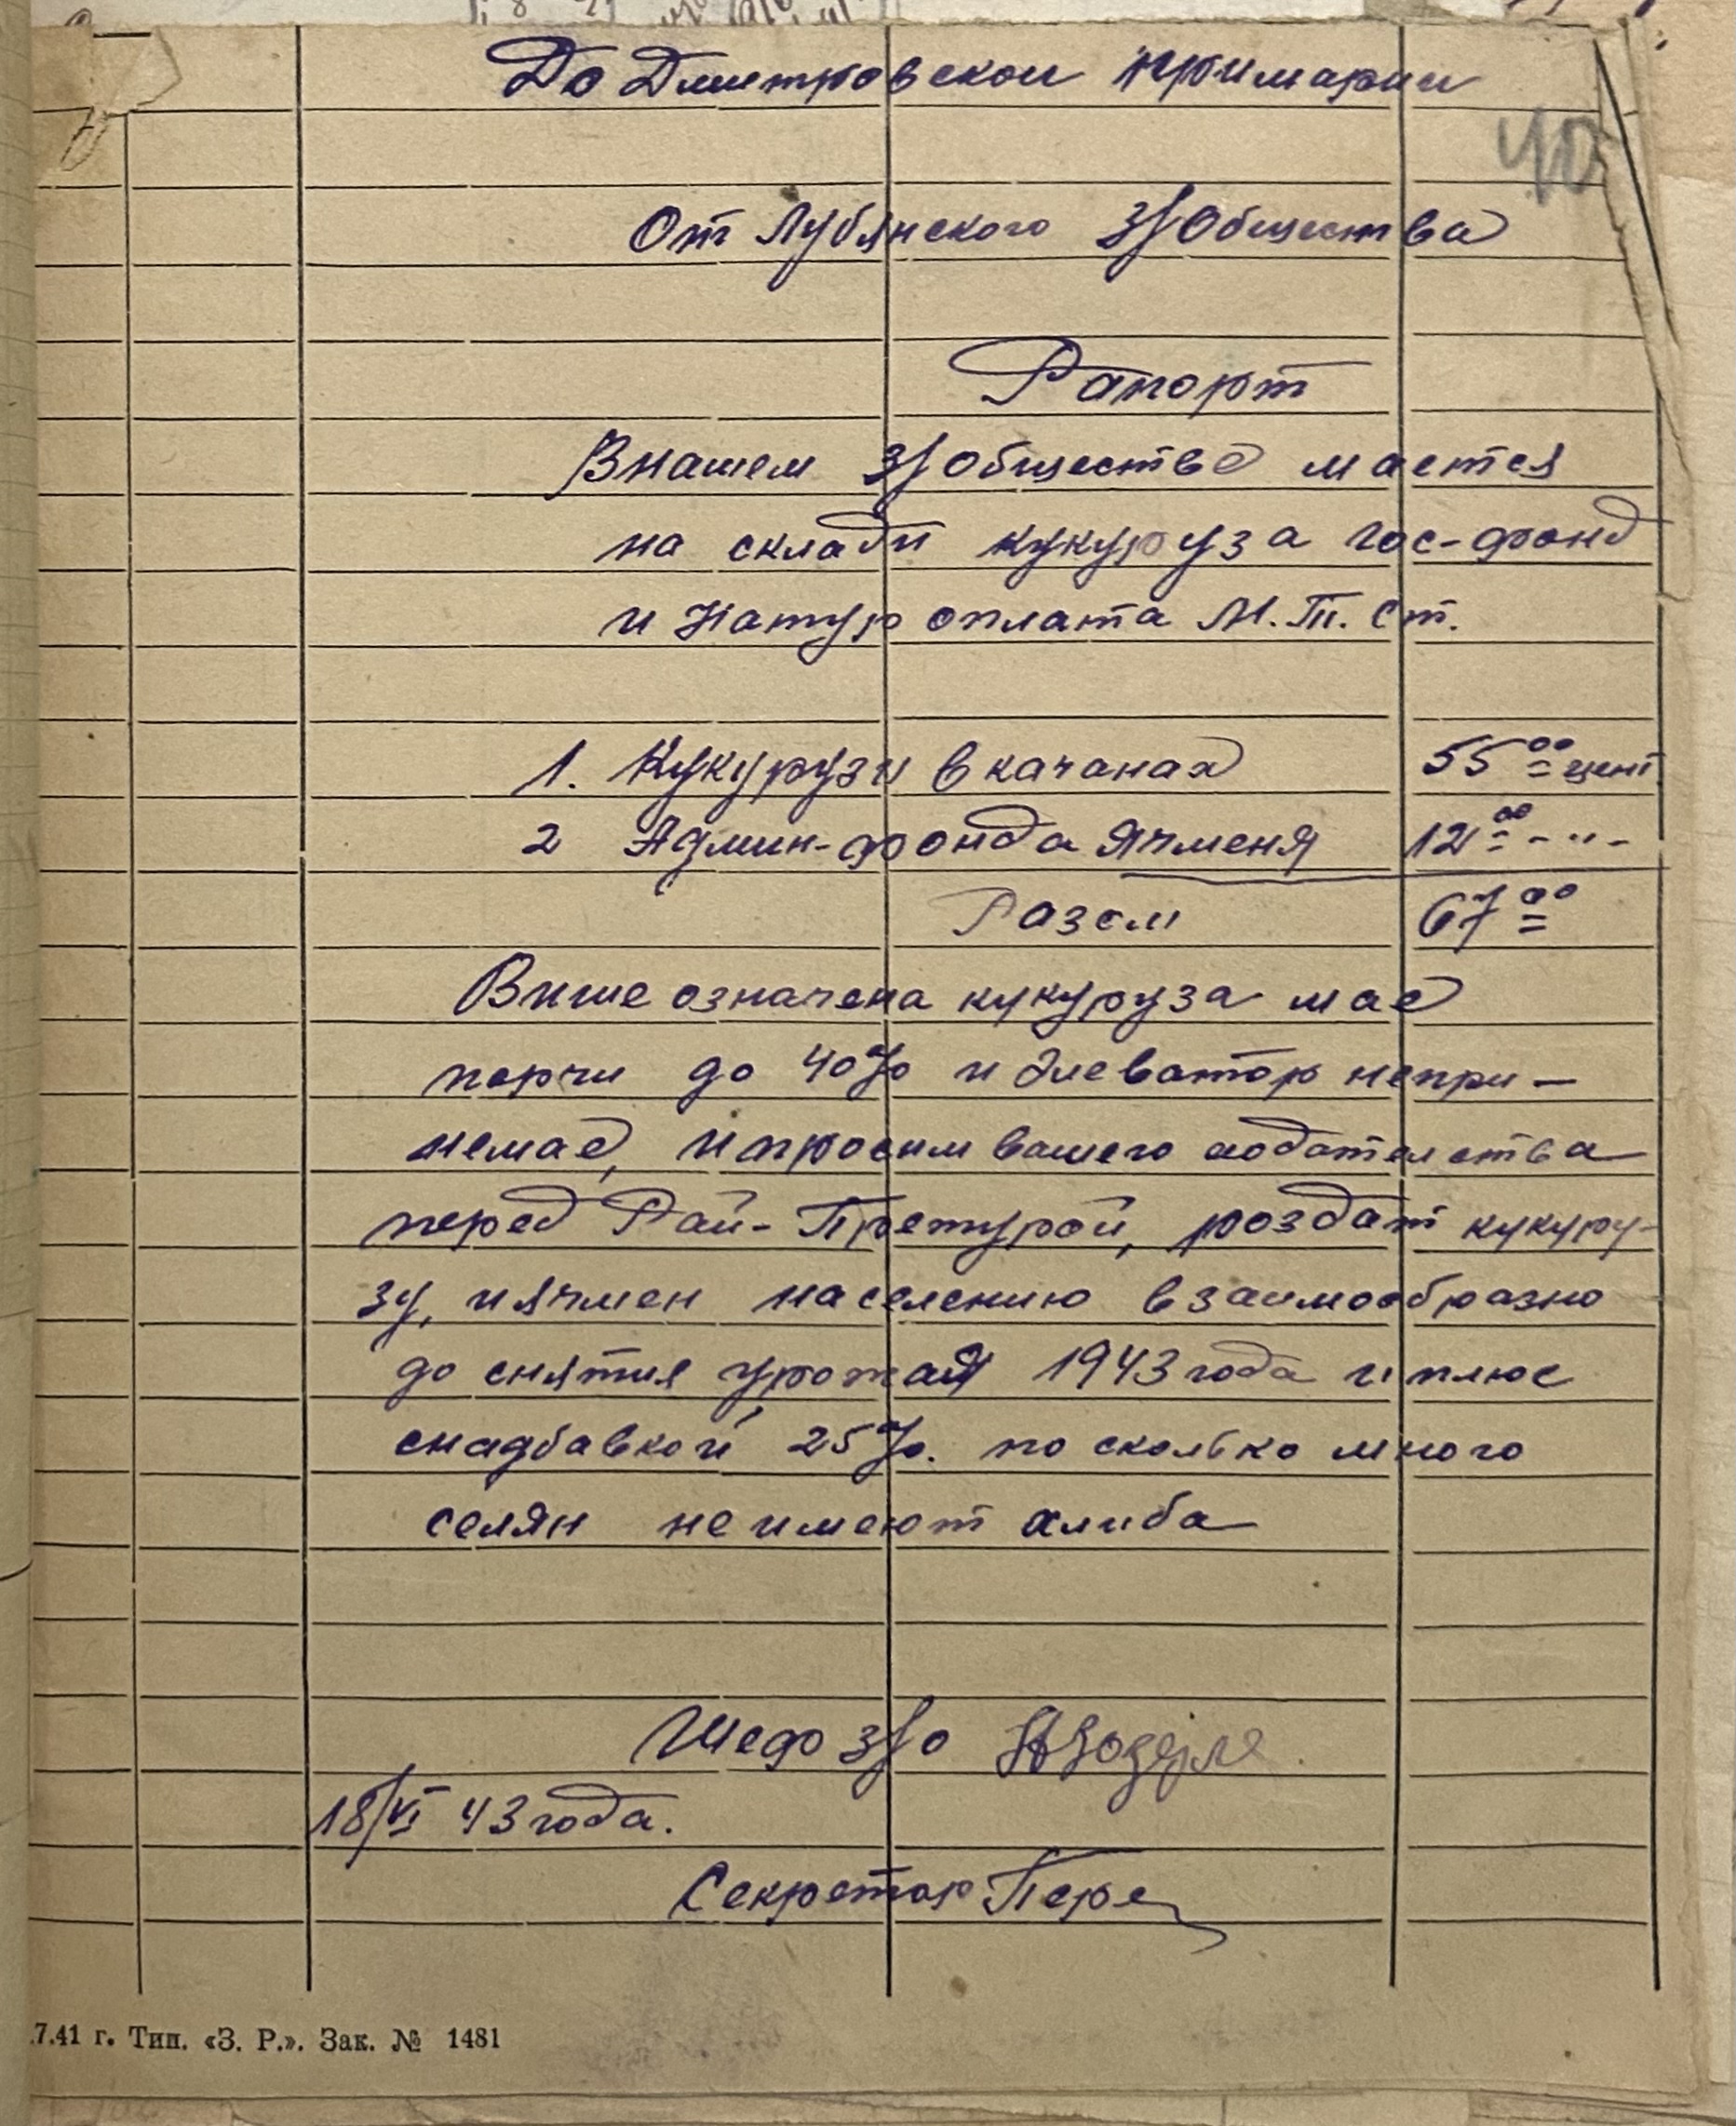 До Дмитровскои примарии
40
От Лубянского З/Общества
Рапорт
Внашем з/обществе мается
на склади кукуруза гос-фонд
и Натур оплата М.Т.Ст.
1. Кукурузи в качанах 55 00 цент
2 Админ-фонда Ячменя 12 00 - " -
Разом 67 00
Више означена кукуруза мае
порчи до 40% и Элеватор непри-
немае, и просим вашего ходотелства
перед Рай-Претурой, роздат кукуру-
зу, иячмен населению взаимообразно
до снятия урожая 1943 года и плюс
снадбавкой 25%. по сколько много
селян неимеют хлиба
Шеф з/о
18/VI 43 года.
Секретар
.7.41 г. Тип. «З. Р.». Зак. № 1481